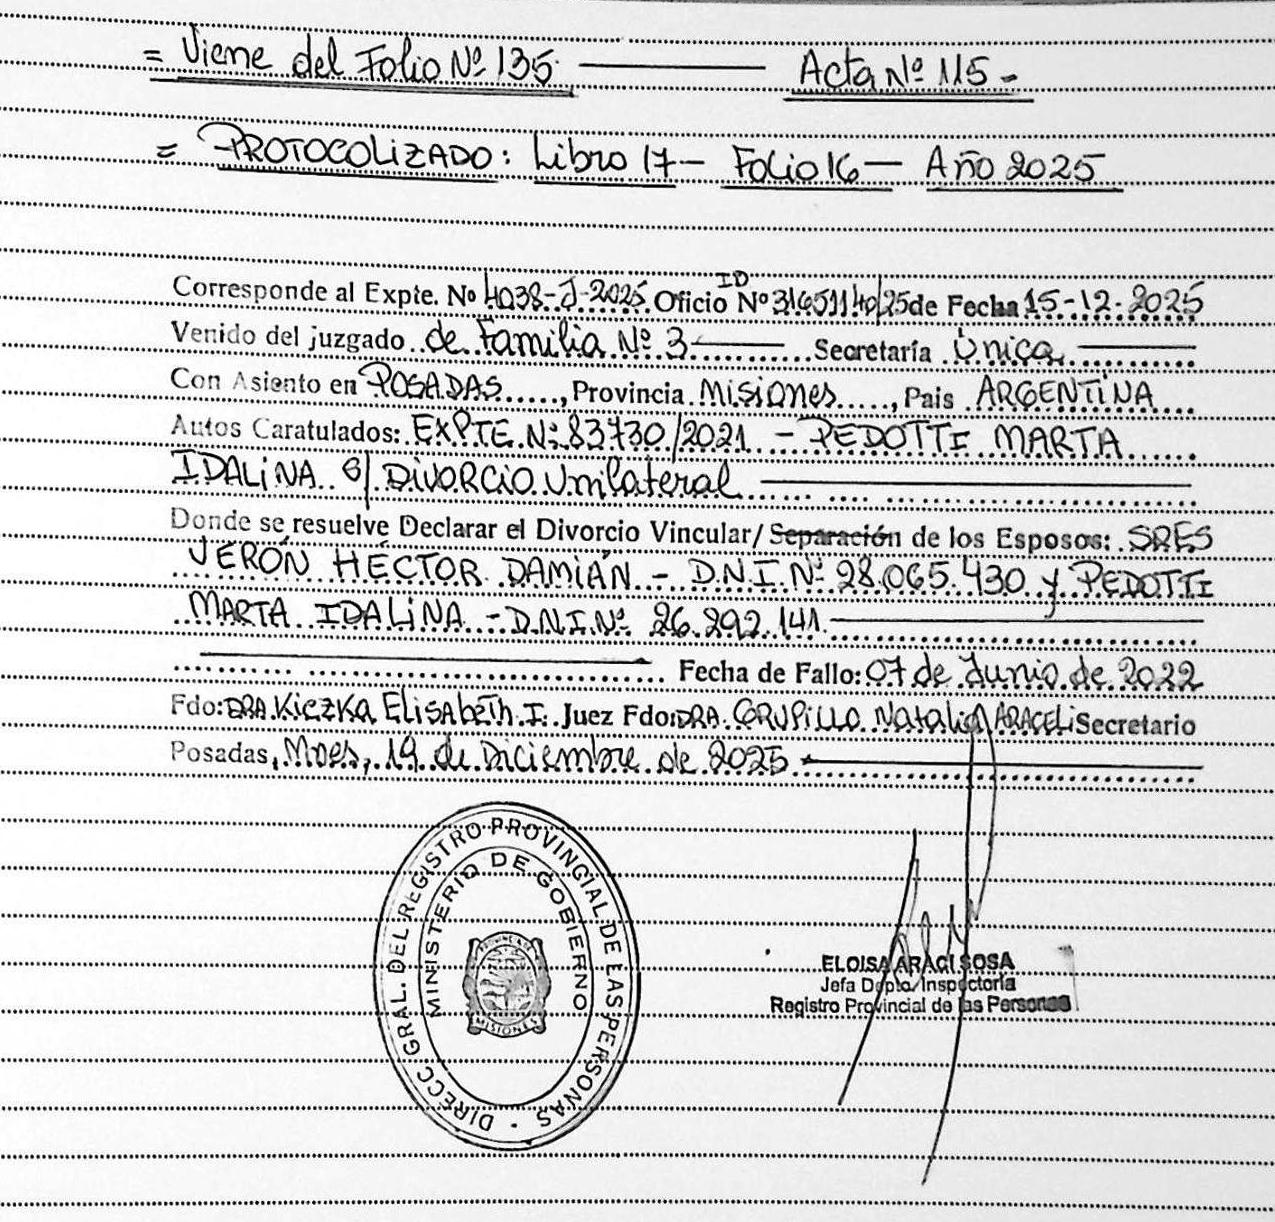 = Viene del Folio Nº 135. Acta Nº 115 -
= PROTOCOLIZADO: Libro 17 - Folio 16 - Año 2025
Corresponde al Expte. No 4038-J-2025 Oficio ID Nº 31651140/25 de Fecha 15-12-2025
Venido del juzgado de Familia Nº 3 Secretaría Única
Con Asiento en POSADAS, Provincia Misiones, Pais ARGENTINA
Autos Caratulados: EXPTE. Nº 83730/2021 - PEDOTTI MARTA
IDALINA S/ DIVORCIO Unilateral
Donde se resuelve Declarar el Divorcio Vincular/ Separación de los Esposos: SRES
VERÓN HÉCTOR DAMIÁN - D.N.I. Nº 28.065.430 y PEDOTTI
MARTA IDALINA - D.N.I. Nº 26.292.141
Fecha de Fallo: 07 de Junio de 2022
Fdo: DRA. KICZKA ELISABETH I. Juez Fdo: DRA. GRUPILLO Natalia ARACELI Secretario
Posadas, Mnes, 19 de Diciembre de 2025
DIRECC. GRAL. DEL REGISTRO PROVINCIAL DE LAS PERSONAS
MINISTERIO DE GOBIERNO
PROVINCIA DE
MISIONES
ELOISA ARACI SOSA
Jefa Dpto. Inspectoría
Registro Provincial de las Personas